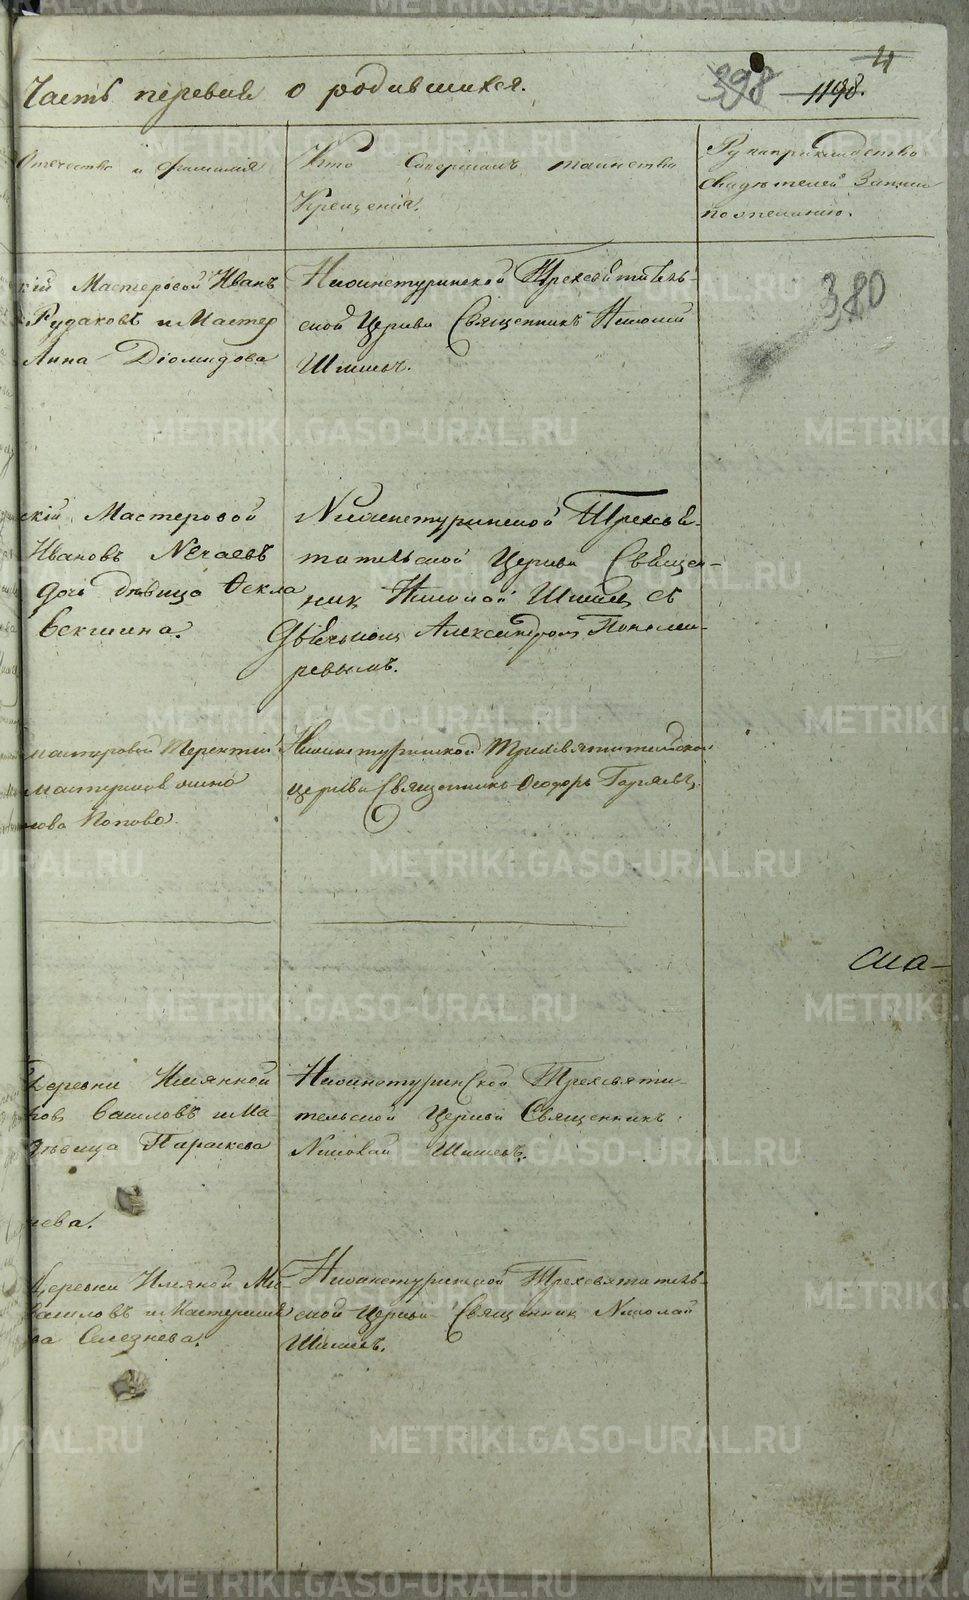 4
Часть первая о родившихся.
398 1198.
Отечество и фамилия
Кто совершалъ таинство
Крещенія.
Рукоприкладство
свидѣтелей записи
по желанію.
380
кій Мастеровой Иванъ
Рудаковъ и Мастер
Анна Діомидова
Нижнетуринской Трехсвятитель-
ской Церкви Священникъ Николай
Шишевъ.
скій Мастеровой
Ивановъ Нечаевъ
дочь дѣвица Ѳекла
Векшина.
Нижнетуринской Трехсвя-
тительской Церкви Священ-
никъ Николай Шишевъ съ
Дьячкомъ Александромъ Понома-
ревымъ.
мастеровой Терентий
Попова.
Нижнетуринской Трехсвятительской
церкви Священникъ Ѳеодоръ
Деревни Именной
и Ма
дѣвица Параскева
ева.
Нижнетуринской Трехсвяти-
тельской Церкви Священникъ
Николай Шишевъ.
Деревни Именной Ма-
и Мастерши
ва Селезнева.
Нижнетуринской Трехсвятитель-
ской Церкви Священник Николай
Шишевъ.
METRIKI.GASO-URAL.RU